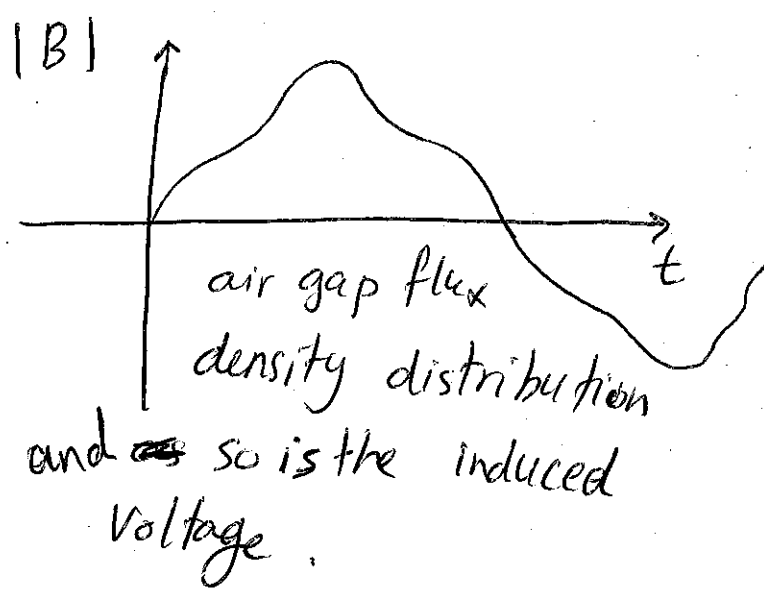 |B|
t
air gap flux
density distribution
and so is the induced
voltage.